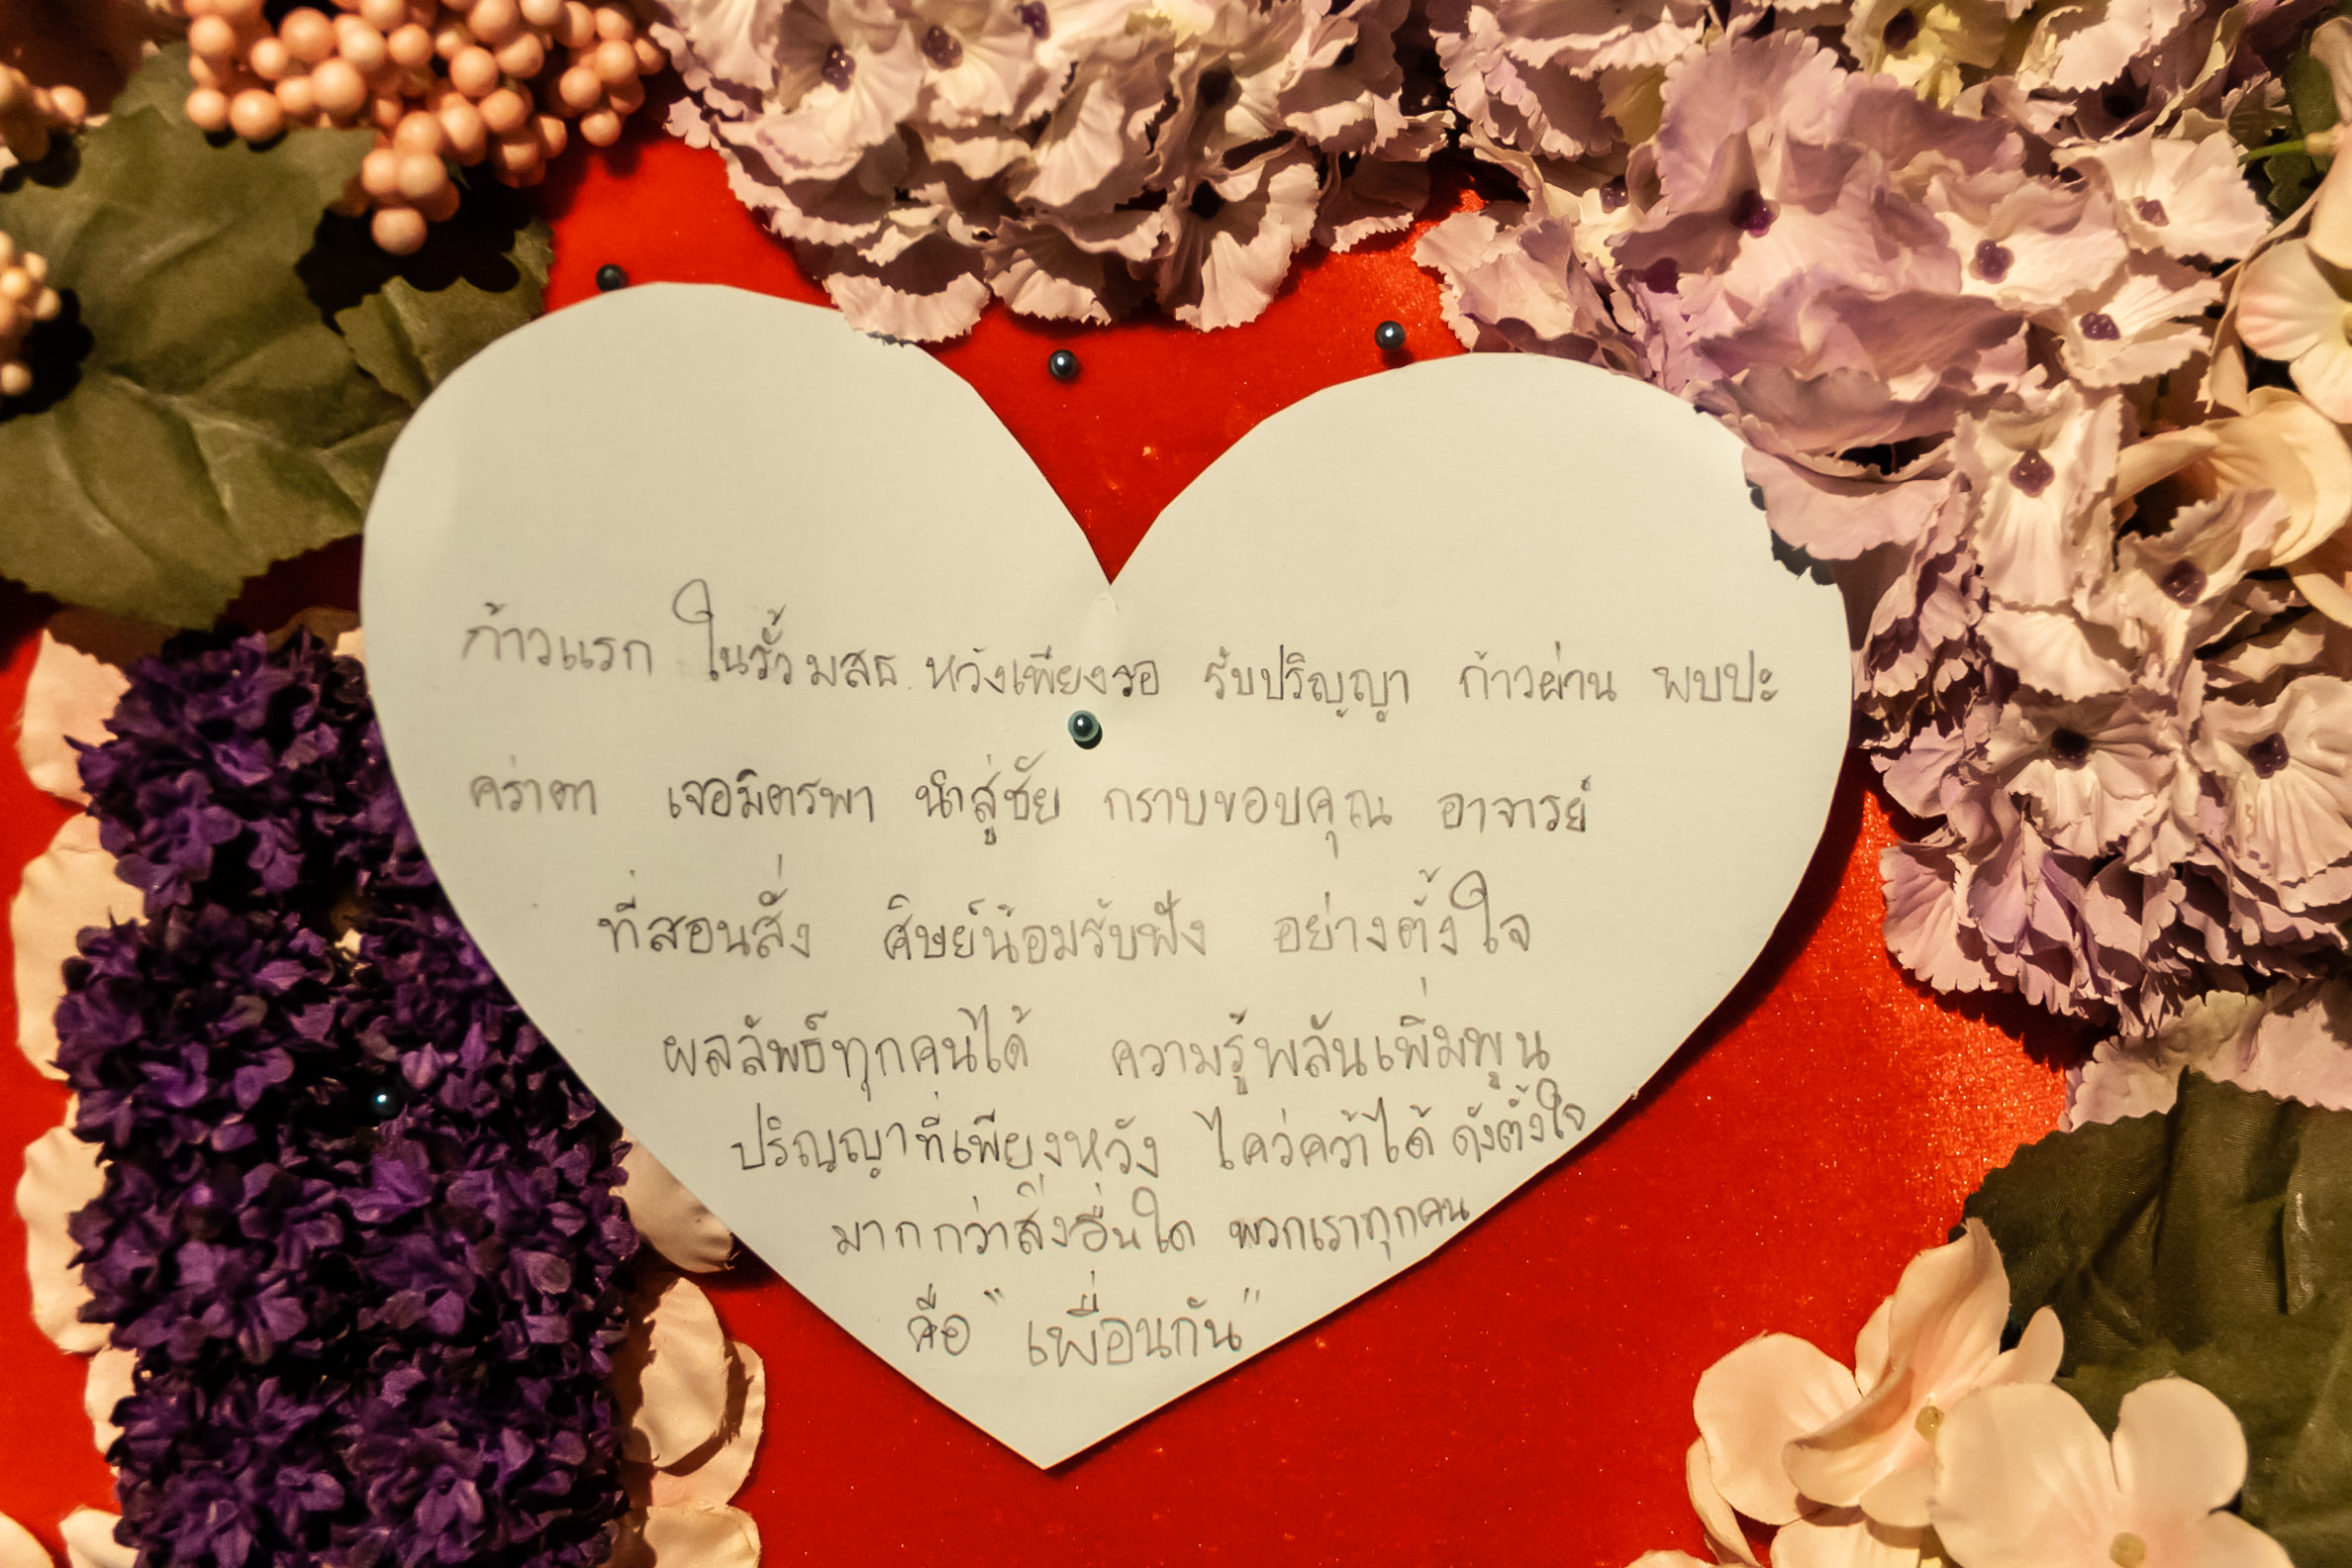 ก้าวแรก ในรั้ว มสธ. หวังเพียงรอ รับปริญญา ก้าวผ่าน พบปะ
คร่าตา เจอมิตรพา นำสู่ชัย กราบขอบคุณ อาจารย์
ที่สอนสั่ง ศิษย์น้อมรับฟัง อย่างตั้งใจ
ผลลัพธ์ทุกคนได้ ความรู้พลันเพิ่มพูน
ปริญญาที่เพียงหวัง ไคว่คว้าได้ ดังตั้งใจ
มากกว่าสิ่งอื่นใด พวกเราทุกคน
คือ "เพื่อนกัน"